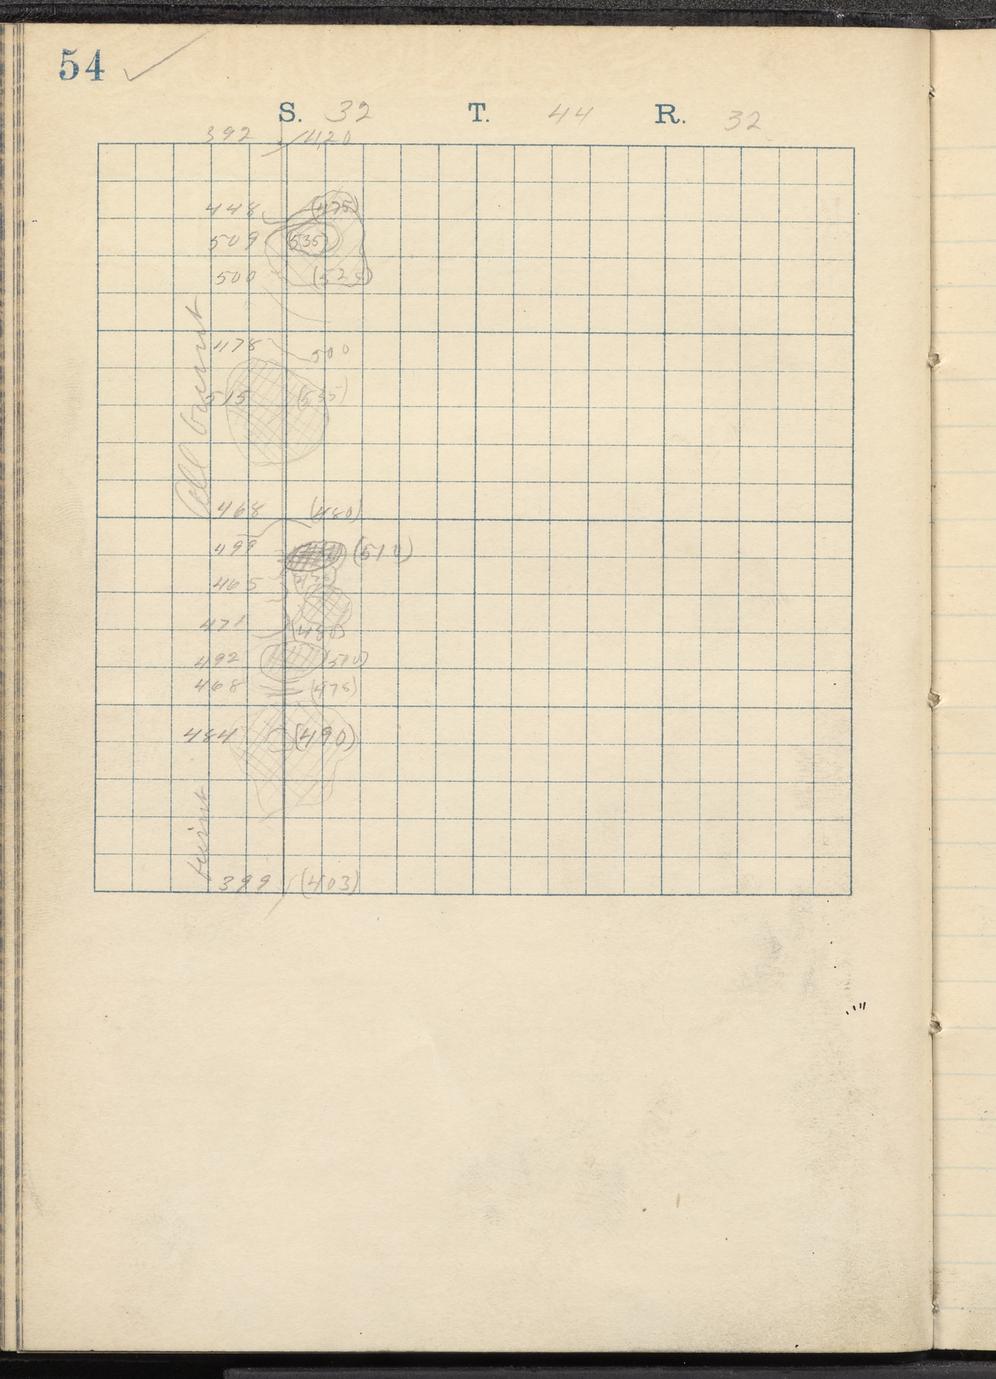 54 ✓
S. 32 T. 44 R. 32
392 420
448 (475)
509 (535)
500 (525)
478 500
515 (535)
All burnt
468 (480)
499 (510)
465 (475)
471 (480)
492 (510)
468 (475)
484 (490)
burnt
399 (403)